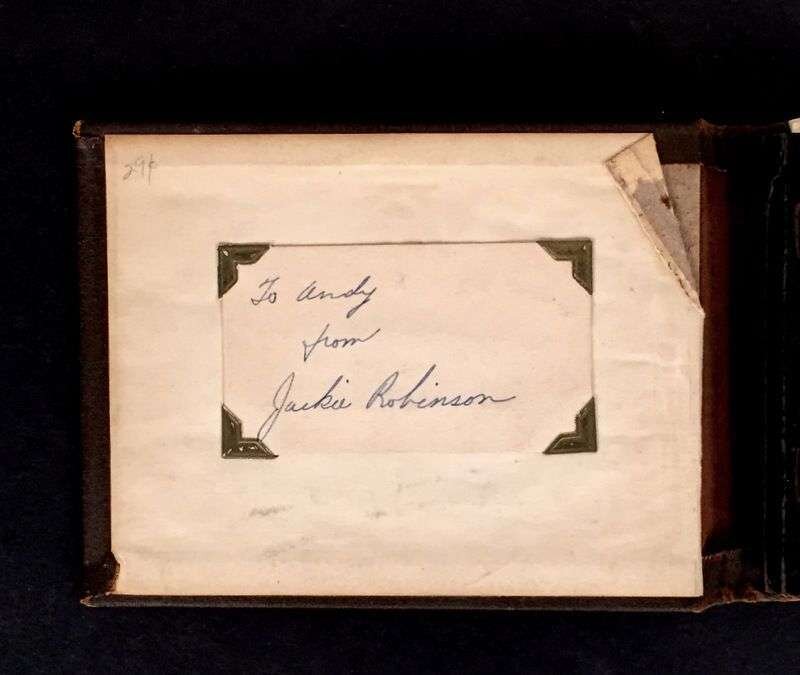 29¢
To Andy
from
Jackie Robinson